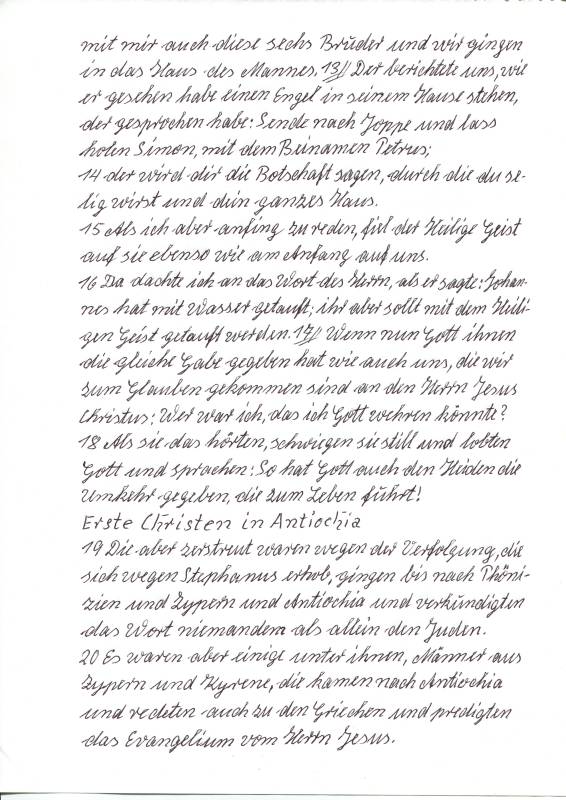 mit mir auch diese sechs Brüder und wir gingen
in das Haus des Mannes. 13// Der berichtete uns, wie
er gesehen habe einen Engel in seinem Hause stehen,
der gesprochen habe: Sende nach Joppe und lass
holen Simon, mit dem Beinamen Petrus;
14 der wird dir die Botschaft sagen, durch die du se-
lig wirst und dein ganzes Haus.
15 Als ich aber anfing zu reden, fiel der Heilige Geist
auf sie ebenso wie am Anfang auf uns.
16 Da dachte ich an das Wort des Herrn, als er sagte: Johan-
nes hat mit Wasser getauft; ihr aber sollt mit dem Heili-
gen Geist getauft werden. 17// Wenn nun Gott ihnen
die gleiche Gabe gegeben hat wie auch uns, die wir
zum Glauben gekommen sind an den Herrn Jesus
Christus: Wer war ich, das ich Gott wehren könnte?
18 Als sie das hörten, schwiegen sie still und lobten
Gott und sprachen: So hat Gott auch den Heiden die
Umkehr gegeben, die zum Leben führt!
Erste Christen in Antiochia
19 Die aber zerstreut waren wegen der Verfolgung, die
sich wegen Stephanus erhob, gingen bis nach Phöni-
zien und Zypern und Antiochia und verkündigten
das Wort niemandem als allein den Juden.
20 Es waren aber einige unter ihnen, Männer aus
Zypern und Kyrene, die kamen nach Antiochia
und redeten auch zu den Griechen und predigten
das Evangelium vom Herrn Jesus.